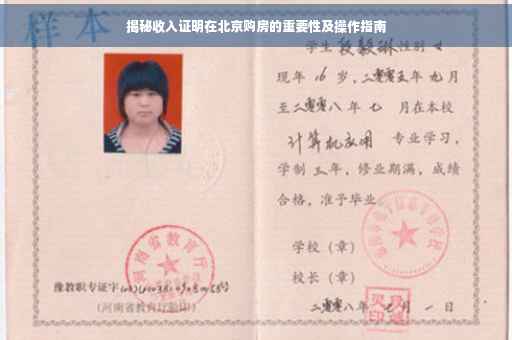 揭秘收入证明在北京购房的重要性及操作指南
样本
学生 段毅琳 性别 女
现年 16 岁，二零零五年 九 月
至二零零八 年 七 月在本校
计算机应用 专业学习，
学制 三 年，修业期满，成绩
合格，准予毕业。
学校（章）
校长（章）
二零零八 年 七 月 一 日
河南省教育厅
豫教职专证字
（河南省教育厅验印）